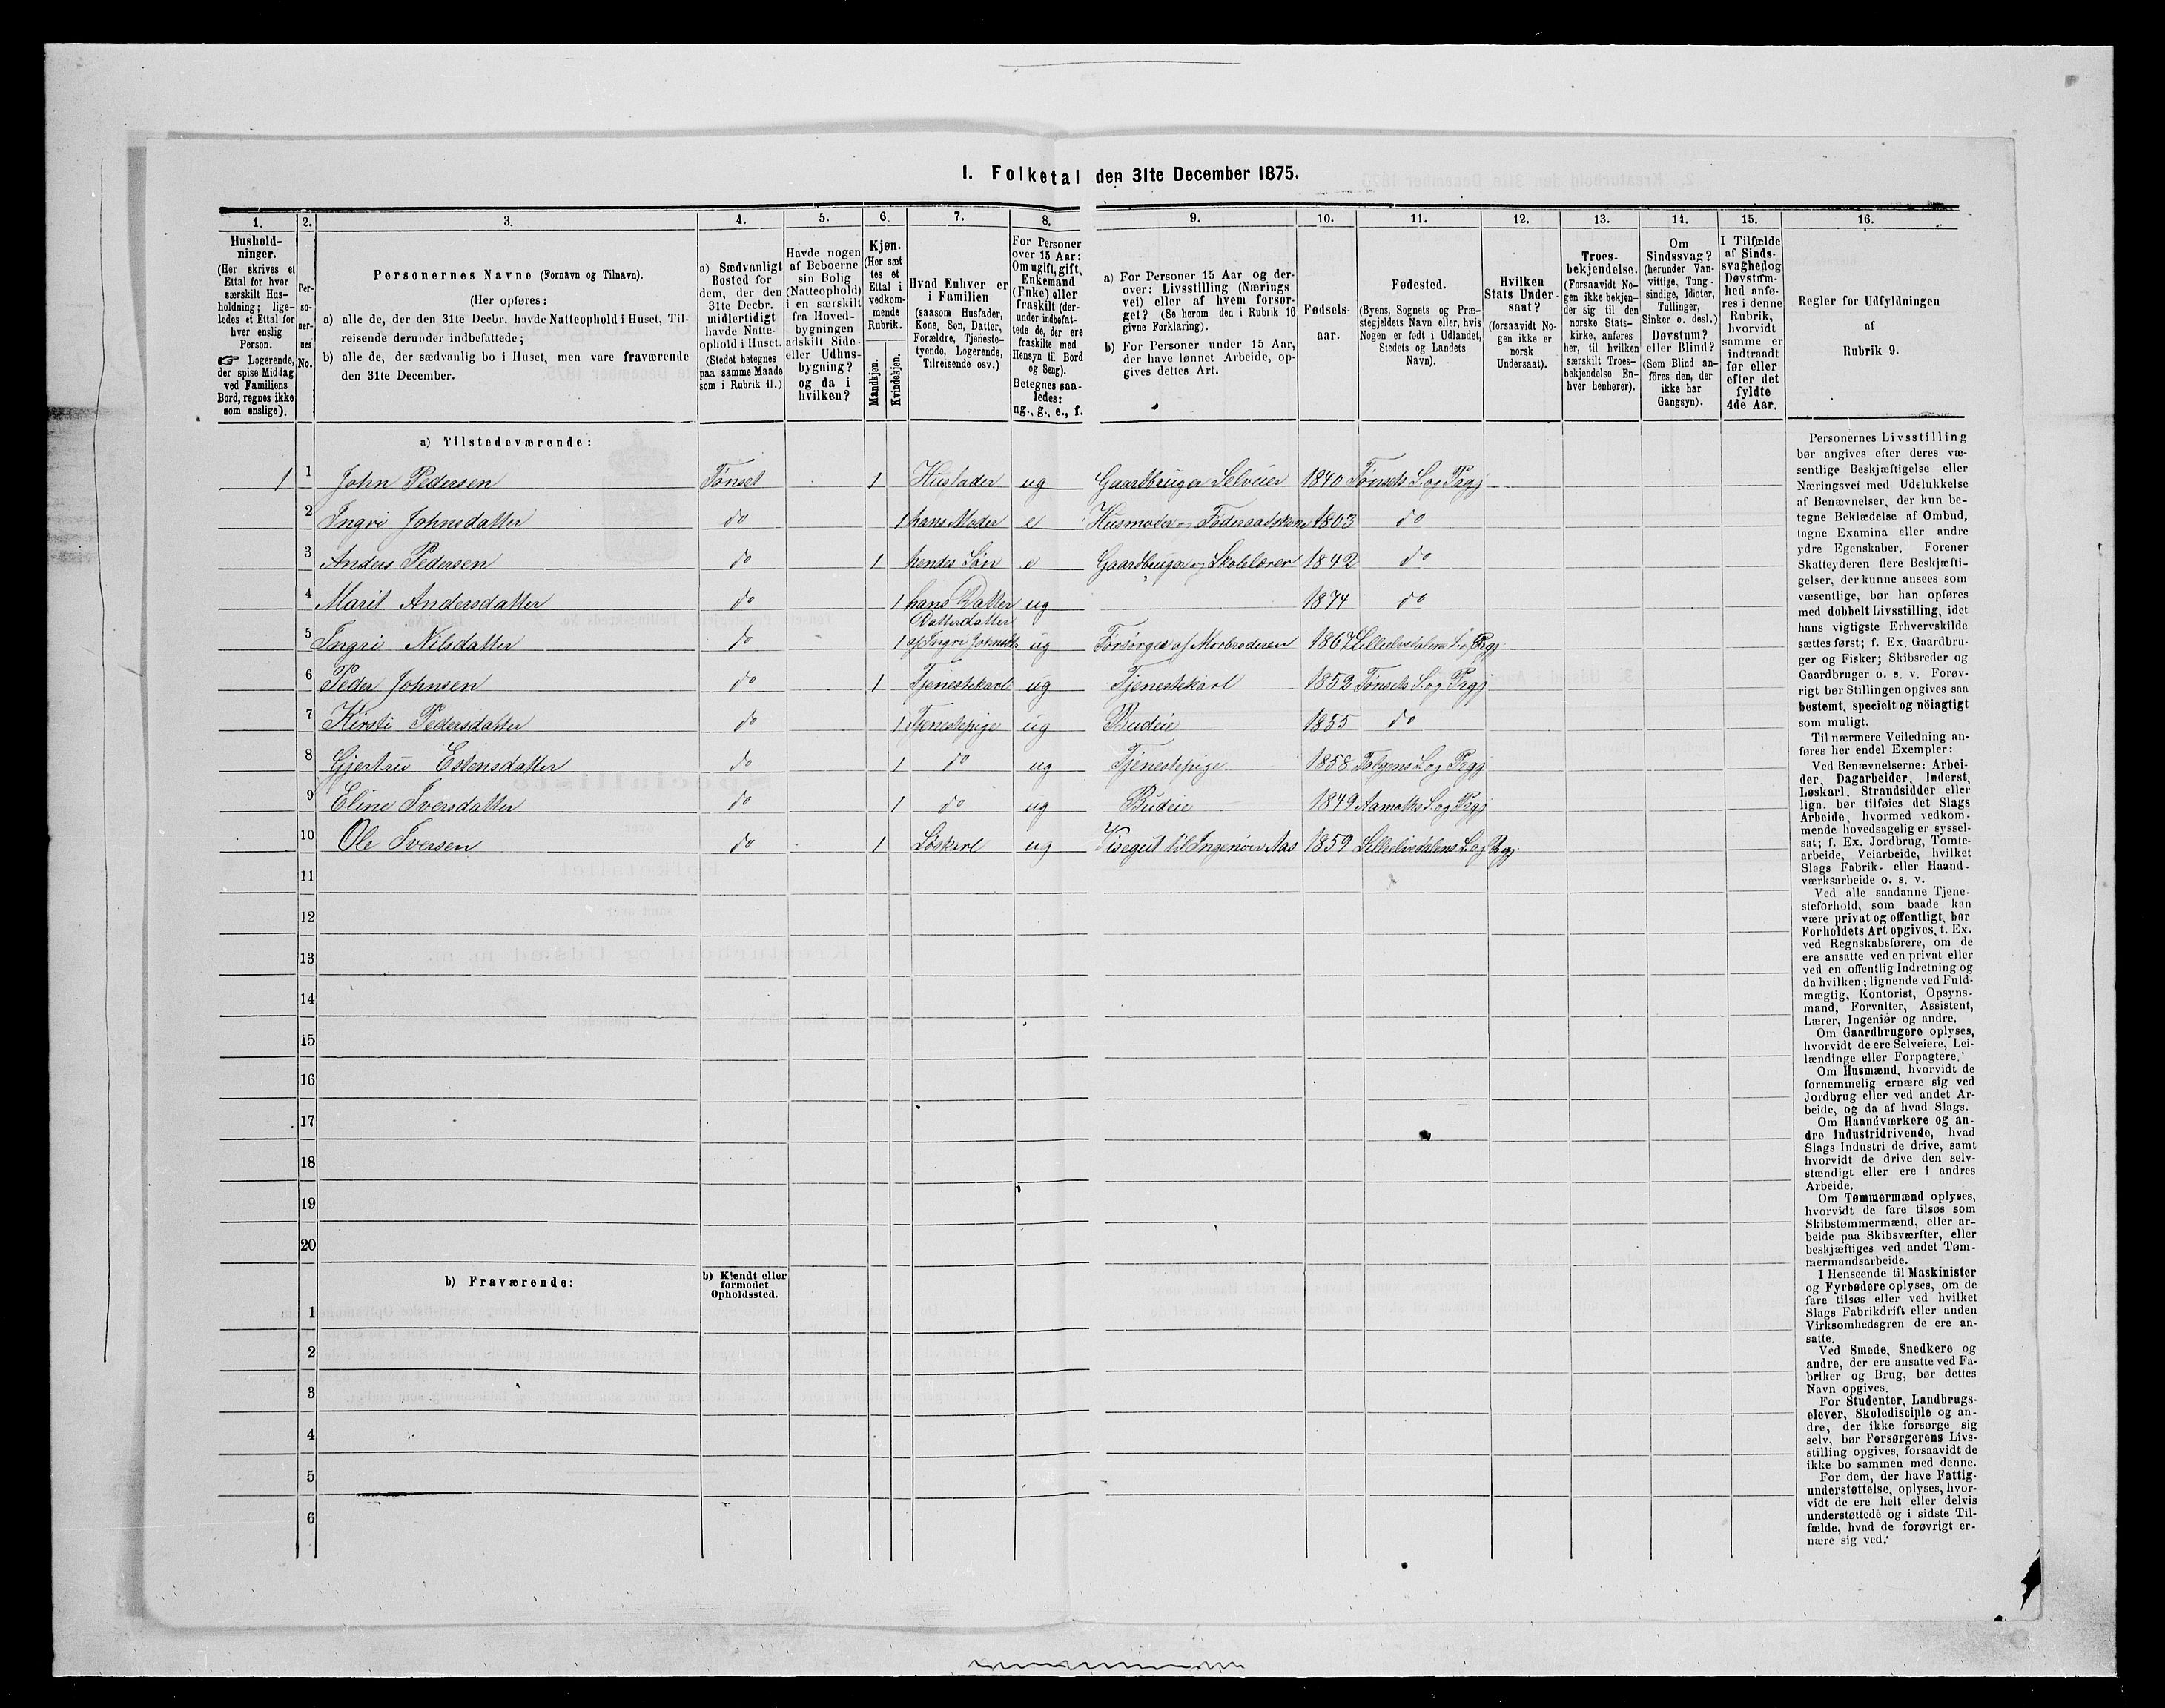 1. Folketal den 31te December 1875.
1. 2. 3. 4. 5. 6. 7. 8. 9. 10. 11. 12. 13. 14. 15. 16.
Hushold-
ninger.
(Her skrives et
Ettal for hver
særskilt Hus-
holdning; lige-
ledes et Ettal for
hver enslig
Person.
☞ Logerende,
der spise Middag
ved Familiens
Bord, regnes ikke
som enslige).
Per-
so-
ner-
nes
No.
Personernes Navne (Fornavn og Tilnavn).
(Her opføres:
a) alle de, der den 31te Decbr. havde Natteophold i Huset, Til-
reisende derunder indbefattede;
b) alle de, der sædvanlig bo i Huset, men vare fraværende
den 31te December.
a) Sædvanligt
Bosted for
dem, der den
31te Decbr.
midlertidigt
havde Natte-
ophold i Huset.
(Stedet betegnes
paa samme Maade
som i Rubrik 11.)
Havde nogen
af Beboerne
sin Bolig
(Natteophold)
i en særskilt
fra Hoved-
bygningen
adskilt Side-
eller Udhus-
bygning?
og da i
hvilken?
Kjøn.
(Her sæt
tes et
Ettal i
vedkom-
mende
Rubrik.
Mandkjøn.
Kvindekjøn.
Hvad Enhver er
i Familien
(saasom Husfader,
Kone, Søn, Datter,
Forældre, Tjeneste-
tyende, Logerende,
Tilreisende osv.)
For Personer
over 15 Aar:
Om ugift, gift,
Enkemand
(Enke) eller
fraskilt (der-
under indbefat-
tede de, der ere
fraskilte med
Hensyn til Bord
og Seng).
Betegnes saa-
ledes:
ug., g., e., f.
a) For Personer 15 Aar og der-
over: Livsstilling (Nærings
vei) eller af hvem forsør-
get? (Se herom den i Rubrik 16
givne Forklaring).
b) For Personer under 15 Aar,
der have lønnet Arbeide, op-
gives dettes Art.
Fødsels-
aar.
Fødested.
(Byens, Sognets og Præ-
stegjeldets Navn eller, hvis
Nogen er født i Udlandet,
Stedets og Landets
Navn).
Hvilken
Stats Under-
saat?
(forsaavidt No-
gen ikke er
norsk
Undersaat).
Troes-
bekjendelse.
(Forsaavidt No-
gen ikke bekjen-
der sig til den
norske Stats-
kirke, anføres
her, til hvilken
særskilt Troes-
bekjendelse En-
hver henhører).
Om
Sindssvag?
(herunder Van-
vittige, Tung-
sindige, Idioter,
Tullinger,
Sinker o. desl.)
Døvstum?
eller Blind?
(Som Blind an-
föres den, der
ikke har
Gangsyn).
I Tilfælde
af Sinds-
svaghed og
Døvstum-
hed anfø-
res i denne
Rubrik,
hvorvidt
samme er
indtraadt
før eller
efter det
fyldte
4de Aar.
Regler for Udfyldningen
af
Rubrik 9.
a) Tilstedeværende:
1 1 John Pedersen Tønset 1 Husfader ug Gaardbruger Selveier 1840 Tønsets S. og Prgj
2 Ingri Johnsdatter do 1 hans Moder e Husmoder og Føderaadskone 1803 do
3 Anders Pedersen do 1 hendes Søn e Gaardbruger og Skolelærer 1842 do
4 Marit Andersdatter do 1 hans Datter ug 1874 do
5 Ingri Nilsdatter do 1 Datterdatter af Ingri Johnsdtr ug Forsørges af Morbroderen 1867 Lilleelvedalens S. og Prgj
6 Peder Johnsen do 1 Tjenestekarl ug Tjenestekarl 1852 Tønsets S. og Prgj
7 Kirsti Pedersdatter do 1 Tjenestepige ug Budeie 1855 do
8 Gjertru Estensdatter do 1 do ug Tjenestepige 1858 Tolgens S. og Prgj
9 Eline Iversdatter do 1 do ug Budeie 1849 Aamotts S. og Prgj
10 Ole Iversen do 1 Løskarl ug Visegut til Ingeniør Aas 1859 Lilleelvedalens S. og Prgj
11
12
13
14
15
16
17
18
19
20
b) Fraværende:
b) Kjendt eller
formodet
Opholdssted.
1
2
3
4
5
6
Personernes Livsstilling
bør angives efter deres væ-
sentlige Beskjæftigelse eller
Næringsvei med Udelukkelse
af Benævnelser, der kun be-
tegne Beklædelse af Ombud,
tagne Examina eller andre
ydre Egenskaber. Forener
Skatteyderen flere Beskjæfti-
gelser, der kunne ansees som
væsentlige, bør han opføres
med dobbelt Livsstilling, idet
hans vigtigste Erhvervskilde
sættes først; f. Ex. Gaardbru-
ger og Fisker; Skibsreder og
Gaardbruger o. s. v. Forøv-
rigt bør Stillingen opgives saa
bestemt, specielt og nöiagtigt
som muligt.
Til nærmere Veiledning an-
føres her endel Exempler:
Ved Benævnelserne: Arbei-
der, Dagarbeider, Inderst,
Løskarl, Strandsidder eller
lign. bør tilføies det Slags
Arbeide, hvormed vedkom-
mende hovedsagelig er syssel-
sat; f. Ex. Jordbrug, Tomte-
arbeide, Veiarbeide, hvilket
Slags Fabrik- eller Haand-
værksarbeide o. s. v.
Ved alle saadanne Tjene-
steforhold, som baade kan
være privat og offentligt, bør
Forholdets Art opgives, t. Ex.
ved Regnskabsførere, om de
ere ansatte ved en privat eller
ved en offentlig Indretning og
da hvilken; lignende ved Fuld-
mægtig, Kontorist, Opsyns-
mand, Forvalter, Assistent,
Lærer, Ingeniør og andre.
Om Gaardbrugere oplyses,
hvorvidt de ere Selveiere, Lei-
lændinge eller Forpagtere.
Om Husmænd, hvorvidt de
fornemmelig ernære sig ved
Jordbrug eller ved andet Ar-
beide, og da af hvad Slags.
Om Haandværkere og an-
dre Industridrivende, hvad
Slags Industri de drive, samt
hvorvidt de drive den selv-
stændigt eller ere i andres
Arbeide.
Om Tømmermænd oplyses,
hvorvidt de fare tilsøs som
Skibstømmermænd, eller ar-
beide paa Skibsværfter, eller
beskjæftiges ved andet Tøm-
mermandsarbeide.
I Henseende til Maskinister
og Fyrbødere oplyses, om de
fare tilsøs eller ved hvilket
Slags Fabrikdrift eller anden
Virksomhedsgren de ere an-
satte.
Ved Smede, Snedkere og
andre, der ere ansatte ved Fa-
briker og Brug, bør dettes
Navn opgives.
For Studenter, Landbrugs-
elever, Skoledisciple og an-
dre, der ikke forsørge sig
selv, bør Forsørgerens Livs-
stilling opgives, forsaavidt de
ikke bo sammen med denne.
For dem, der have Fattig-
understøttelse, oplyses, hvor-
vidt de ere helt eller delvis
understøttede og i sidste Til-
fælde, hvad de forøvrigt er-
nære sig ved.